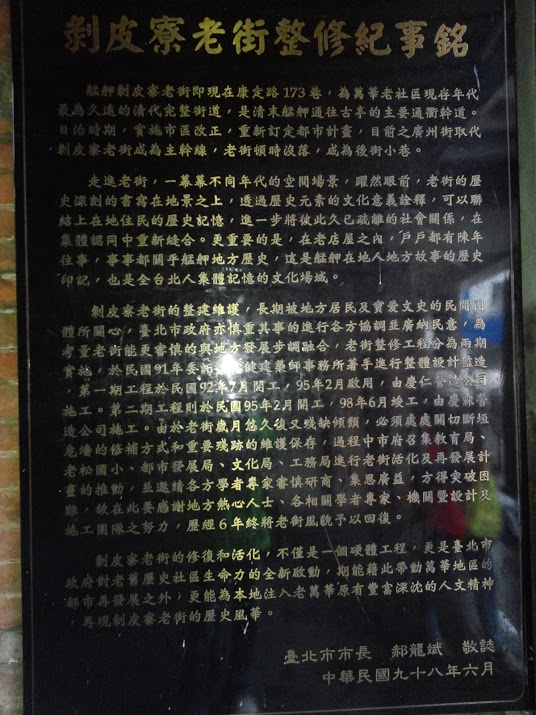 剝皮寮老街整修紀事銘
艋舺剝皮寮老街即現在康定路173巷，為萬華老社區現存年代
最為久遠的清代完整街道，是清末艋舺通往古亭的主要通衢幹道。
日治時期，實施市區改正，重新訂定都市計畫，目前之廣州街取代
剝皮寮老街成為主幹線，老街頓時沒落，成為後街小巷。
走進老街，一幕幕不同年代的空間場景，躍然眼前，老街的歷
史深刻的書寫在地景之上，透過歷史元素的文化意義詮釋，可以聯
結上在地住民的歷史記憶，進一步將彼此久已疏離的社會關係，在
集體認同中重新縫合。更重要的是，在老店屋之內，戶戶都有陳年
往事，事事都關乎艋舺地方歷史，這是艋舺在地人地方故事的歷史
印記，也是全台北人集體記憶的文化場域。
剝皮寮老街的整建維護，長期被地方居民及寶愛文史的民間團
體所關心，臺北市政府亦慎重其事的進行各方協調並廣納民意，為
考量老街能更審慎的與地方發展步調融合，老街整修工程分為兩期
實施，於民國91年委託 建築師事務所著手進行整體設計監造
，第一期工程於民國92年7月開工，95年2月啟用，由慶仁營造公司
施工。第二期工程則於民國95年2月開工，98年6月竣工，由慶 營
造公司施工。由於老街歲月悠久復又殘缺傾頹，必須處處關切斷垣
危墻的修補方式和重要殘跡的維護保存，過程中市府召集教育局、
老松國小、都市發展局、文化局、工務局進行老街活化及再發展計
畫的推動，並邀請各方學者專家審慎研商、集思廣益，方得突破困
難，故在此要感謝地方熱心人士、各相關學者專家、機關暨設計及
施工團隊之努力，歷經6年終將老街風貌予以回復。
剝皮寮老街的修復和活化，不僅是一個硬體工程，更是臺北市
政府對老舊歷史社區生命力的全新啟動，期能藉此帶動萬華地區的
都市再發展之外，更能為本地注入老萬華原有豐富深沈的人文精神
，再現剝皮寮老街的歷史風華。
臺北市市長 郝龍斌 敬誌
中華民國九十八年六月